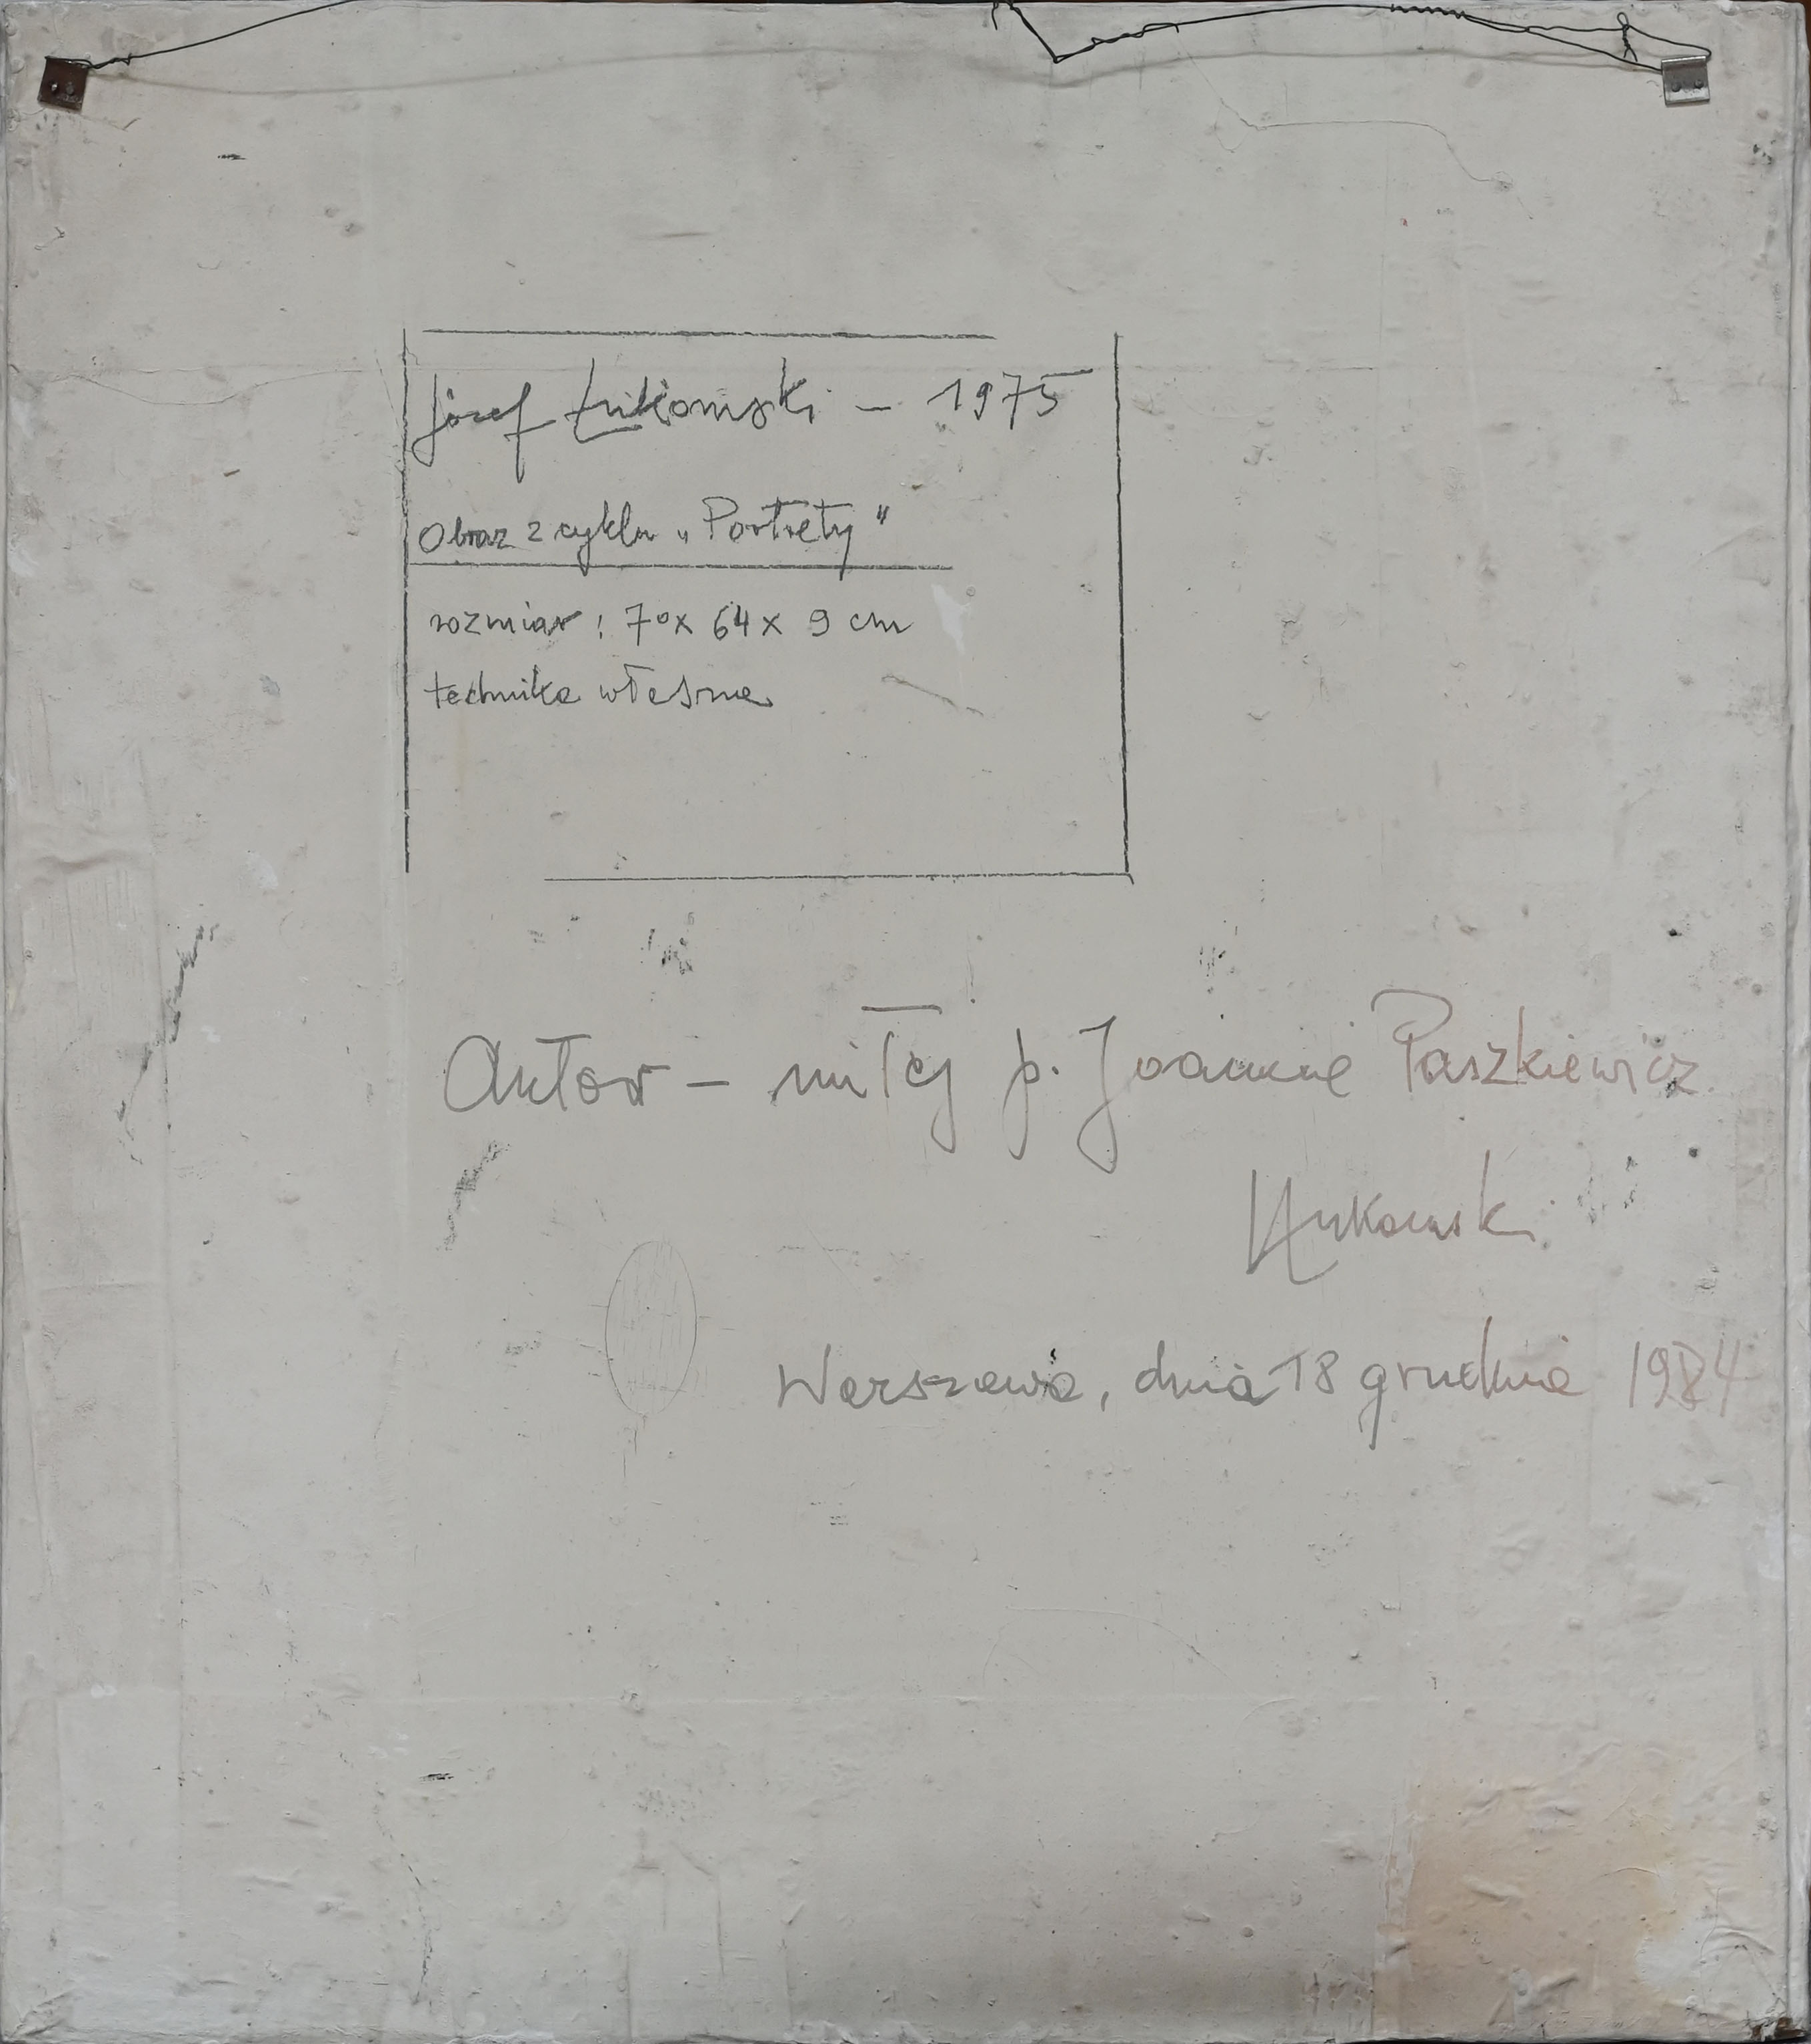 Józef Łukomski – 1975
Obraz z cyklu „Portrety"
rozmiar: 70 x 64 x 9 cm
technika własna
Autor – miłej p. Joannie Paszkiewicz
Łukomski
Warszawa, dnia 18 grudnia 1984